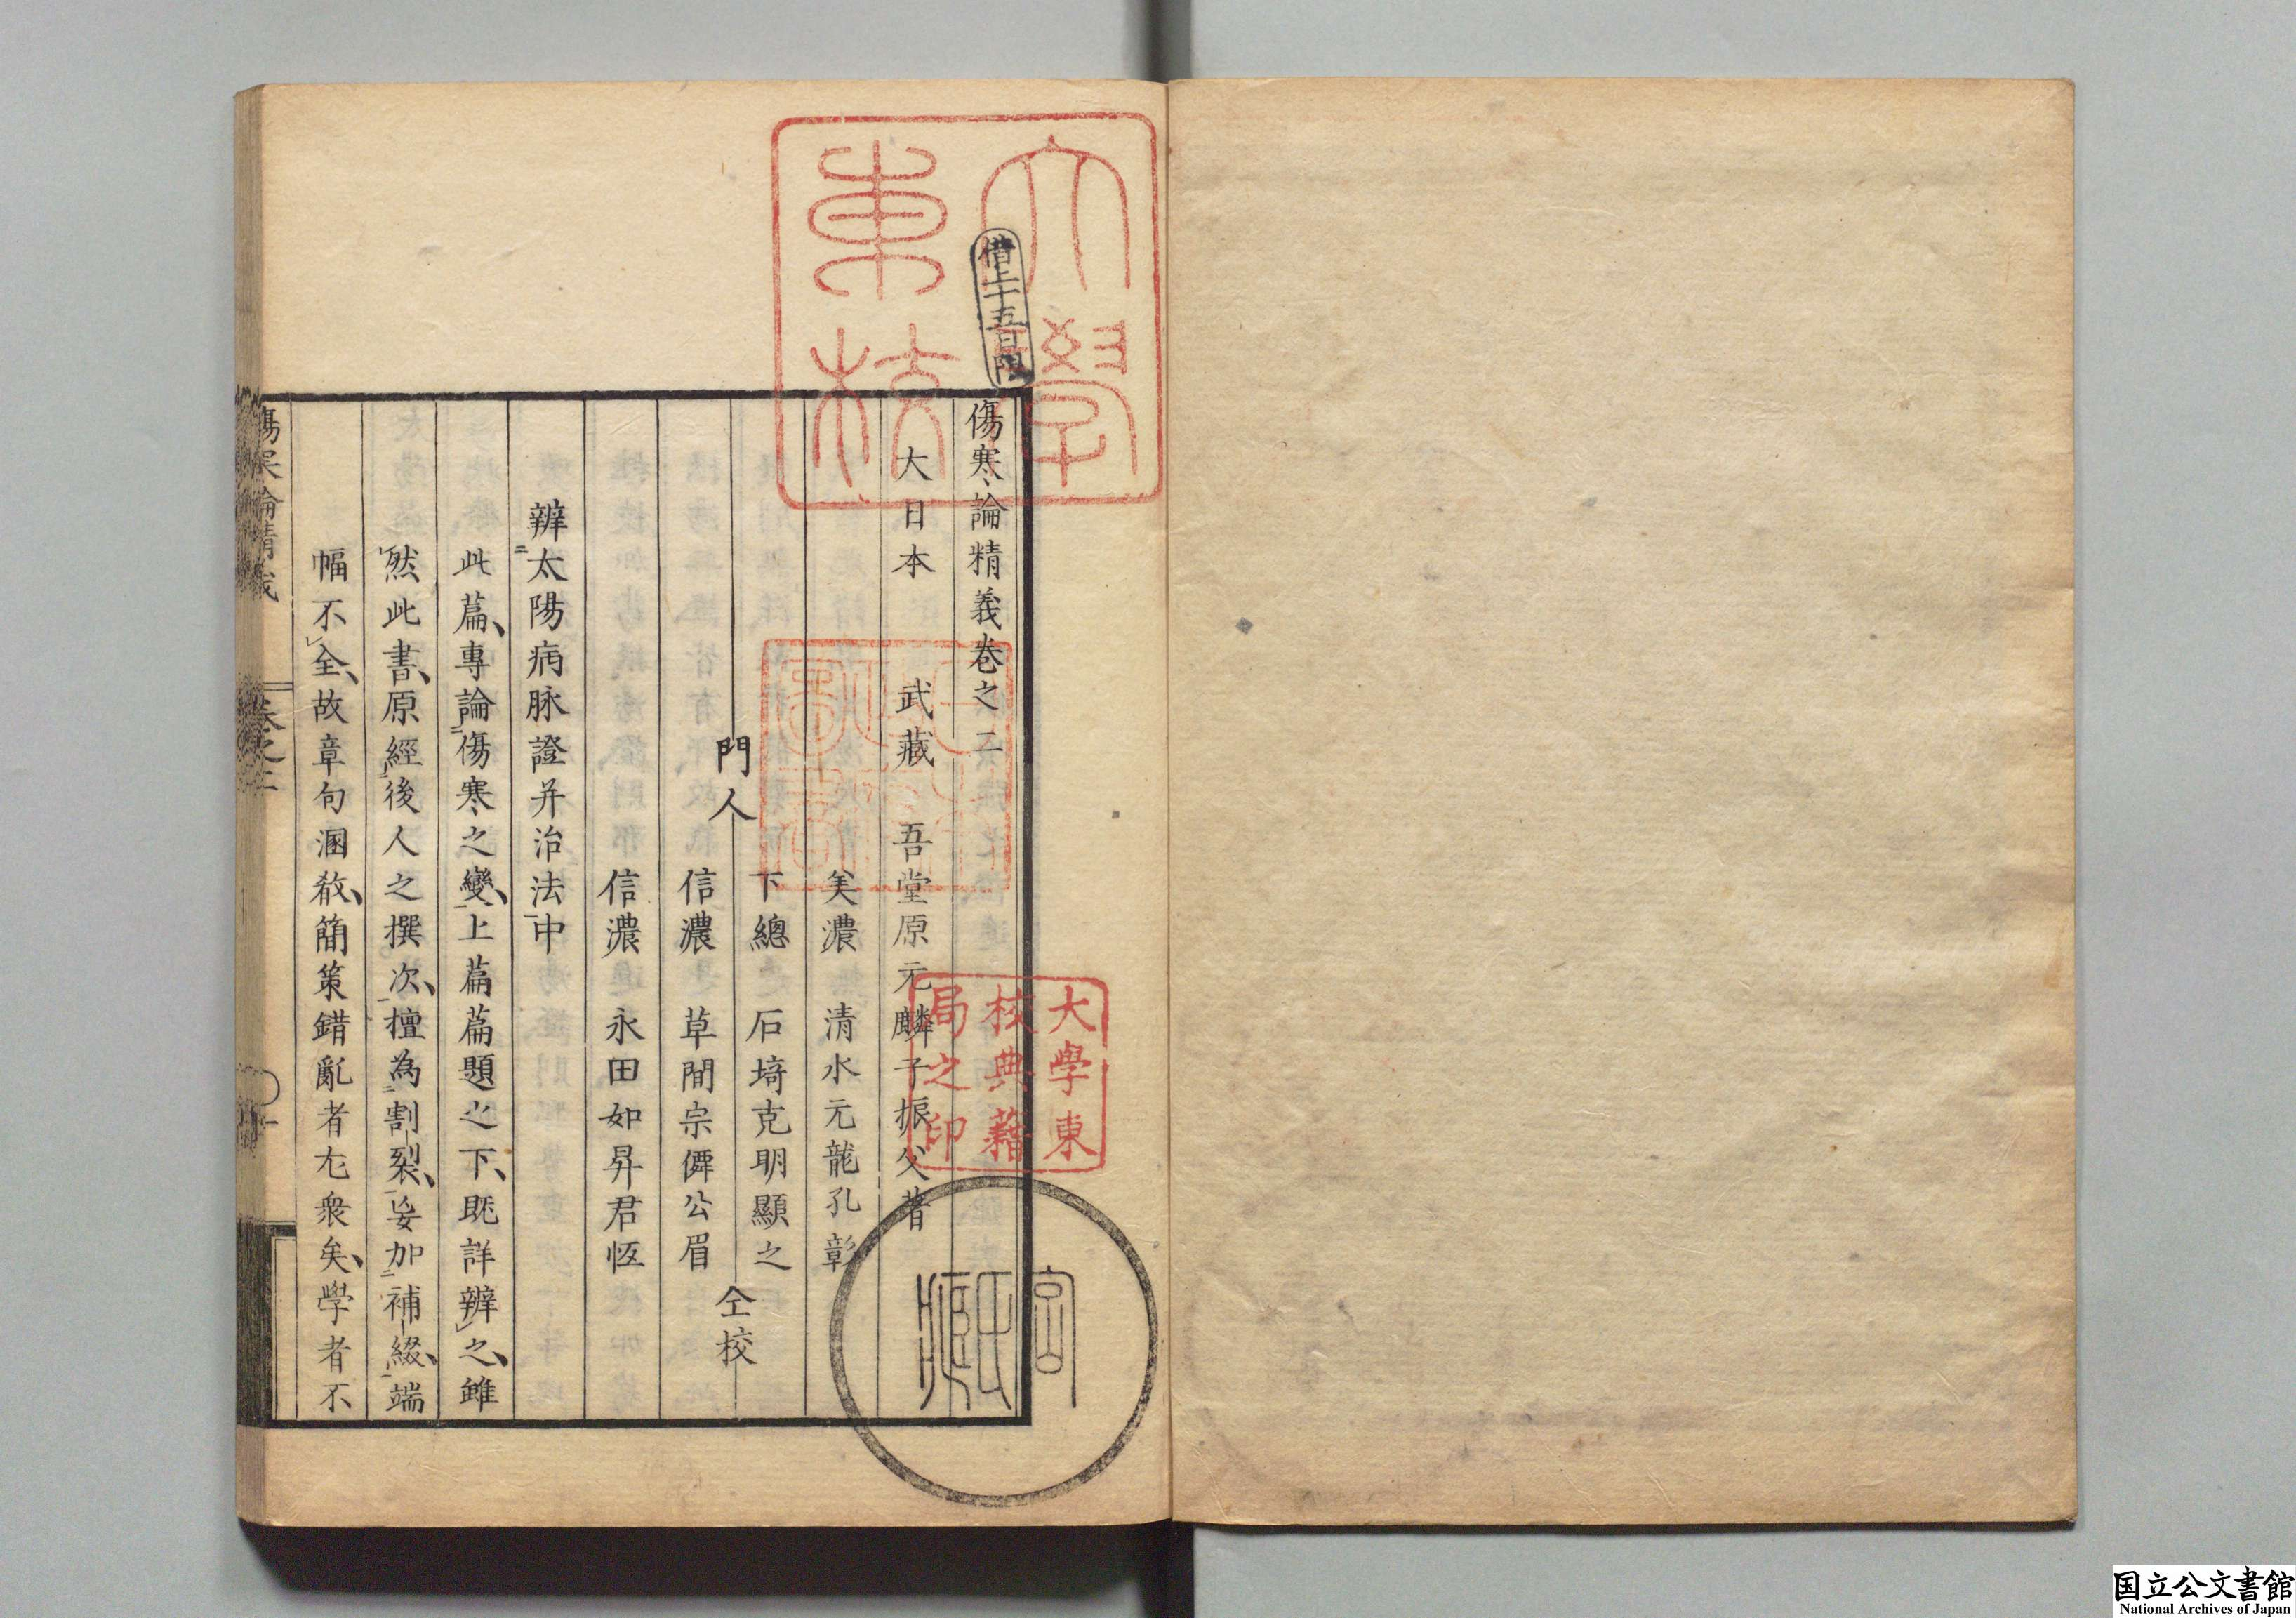 傷寒論精義卷之二
大日本　武藏　吾堂原元麟子振父著
美濃　清水元龍孔彰
門人
下總　石埼克明顯之
信濃　草間宗僊公眉
仝校
信濃　永田如昇君恆
辨太陽病脉證并治法中
此篇專論傷寒之變上篇篇題之下既詳辨之雖
然此書原經後人之撰次擅為割裂妄加補綴端
幅不全故章句溷殽簡策錯亂者尢衆矣學者不
傷寒論精義
卷之二
大學東校
借上十五日限
大學東
校典籍
局之印
国立公文書館
National Archives of Japan